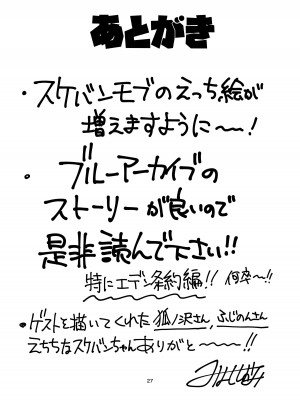 あとがき
・スケバンモブのえっち絵が
増えますように〜〜!
・ブルーアーカイブの
ストーリーが良いので
是非読んで下さい!!
特にエデン条約編!! 何卒〜!!
・ゲストを描いてくれた狐ノ沢さん、ふじめんさん
えちちなスケバンちゃんありがと〜〜〜!!
27